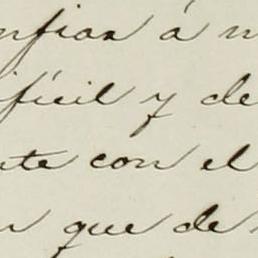 nfiar á
ifícil y de
nte con el
que de